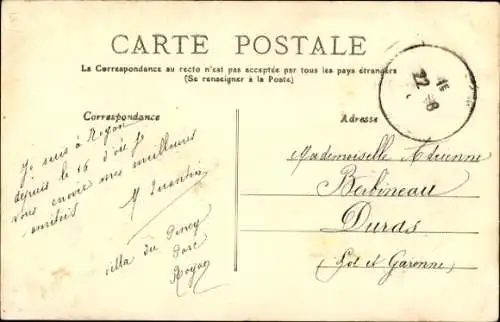 CARTE POSTALE
La Correspondance au recto n'est pas acceptée par tous les pays étrangers
(Se renseigner à la Poste)
Correspondance
Je suis à Royan
depuis le 16 d'où je
vous envoie mes meilleures
amitiés
M Quentin
villa du
Parc
Royan
Adresse
Mademoiselle Adrienne
Berbineau
Duras
(Lot et Garonne)
22